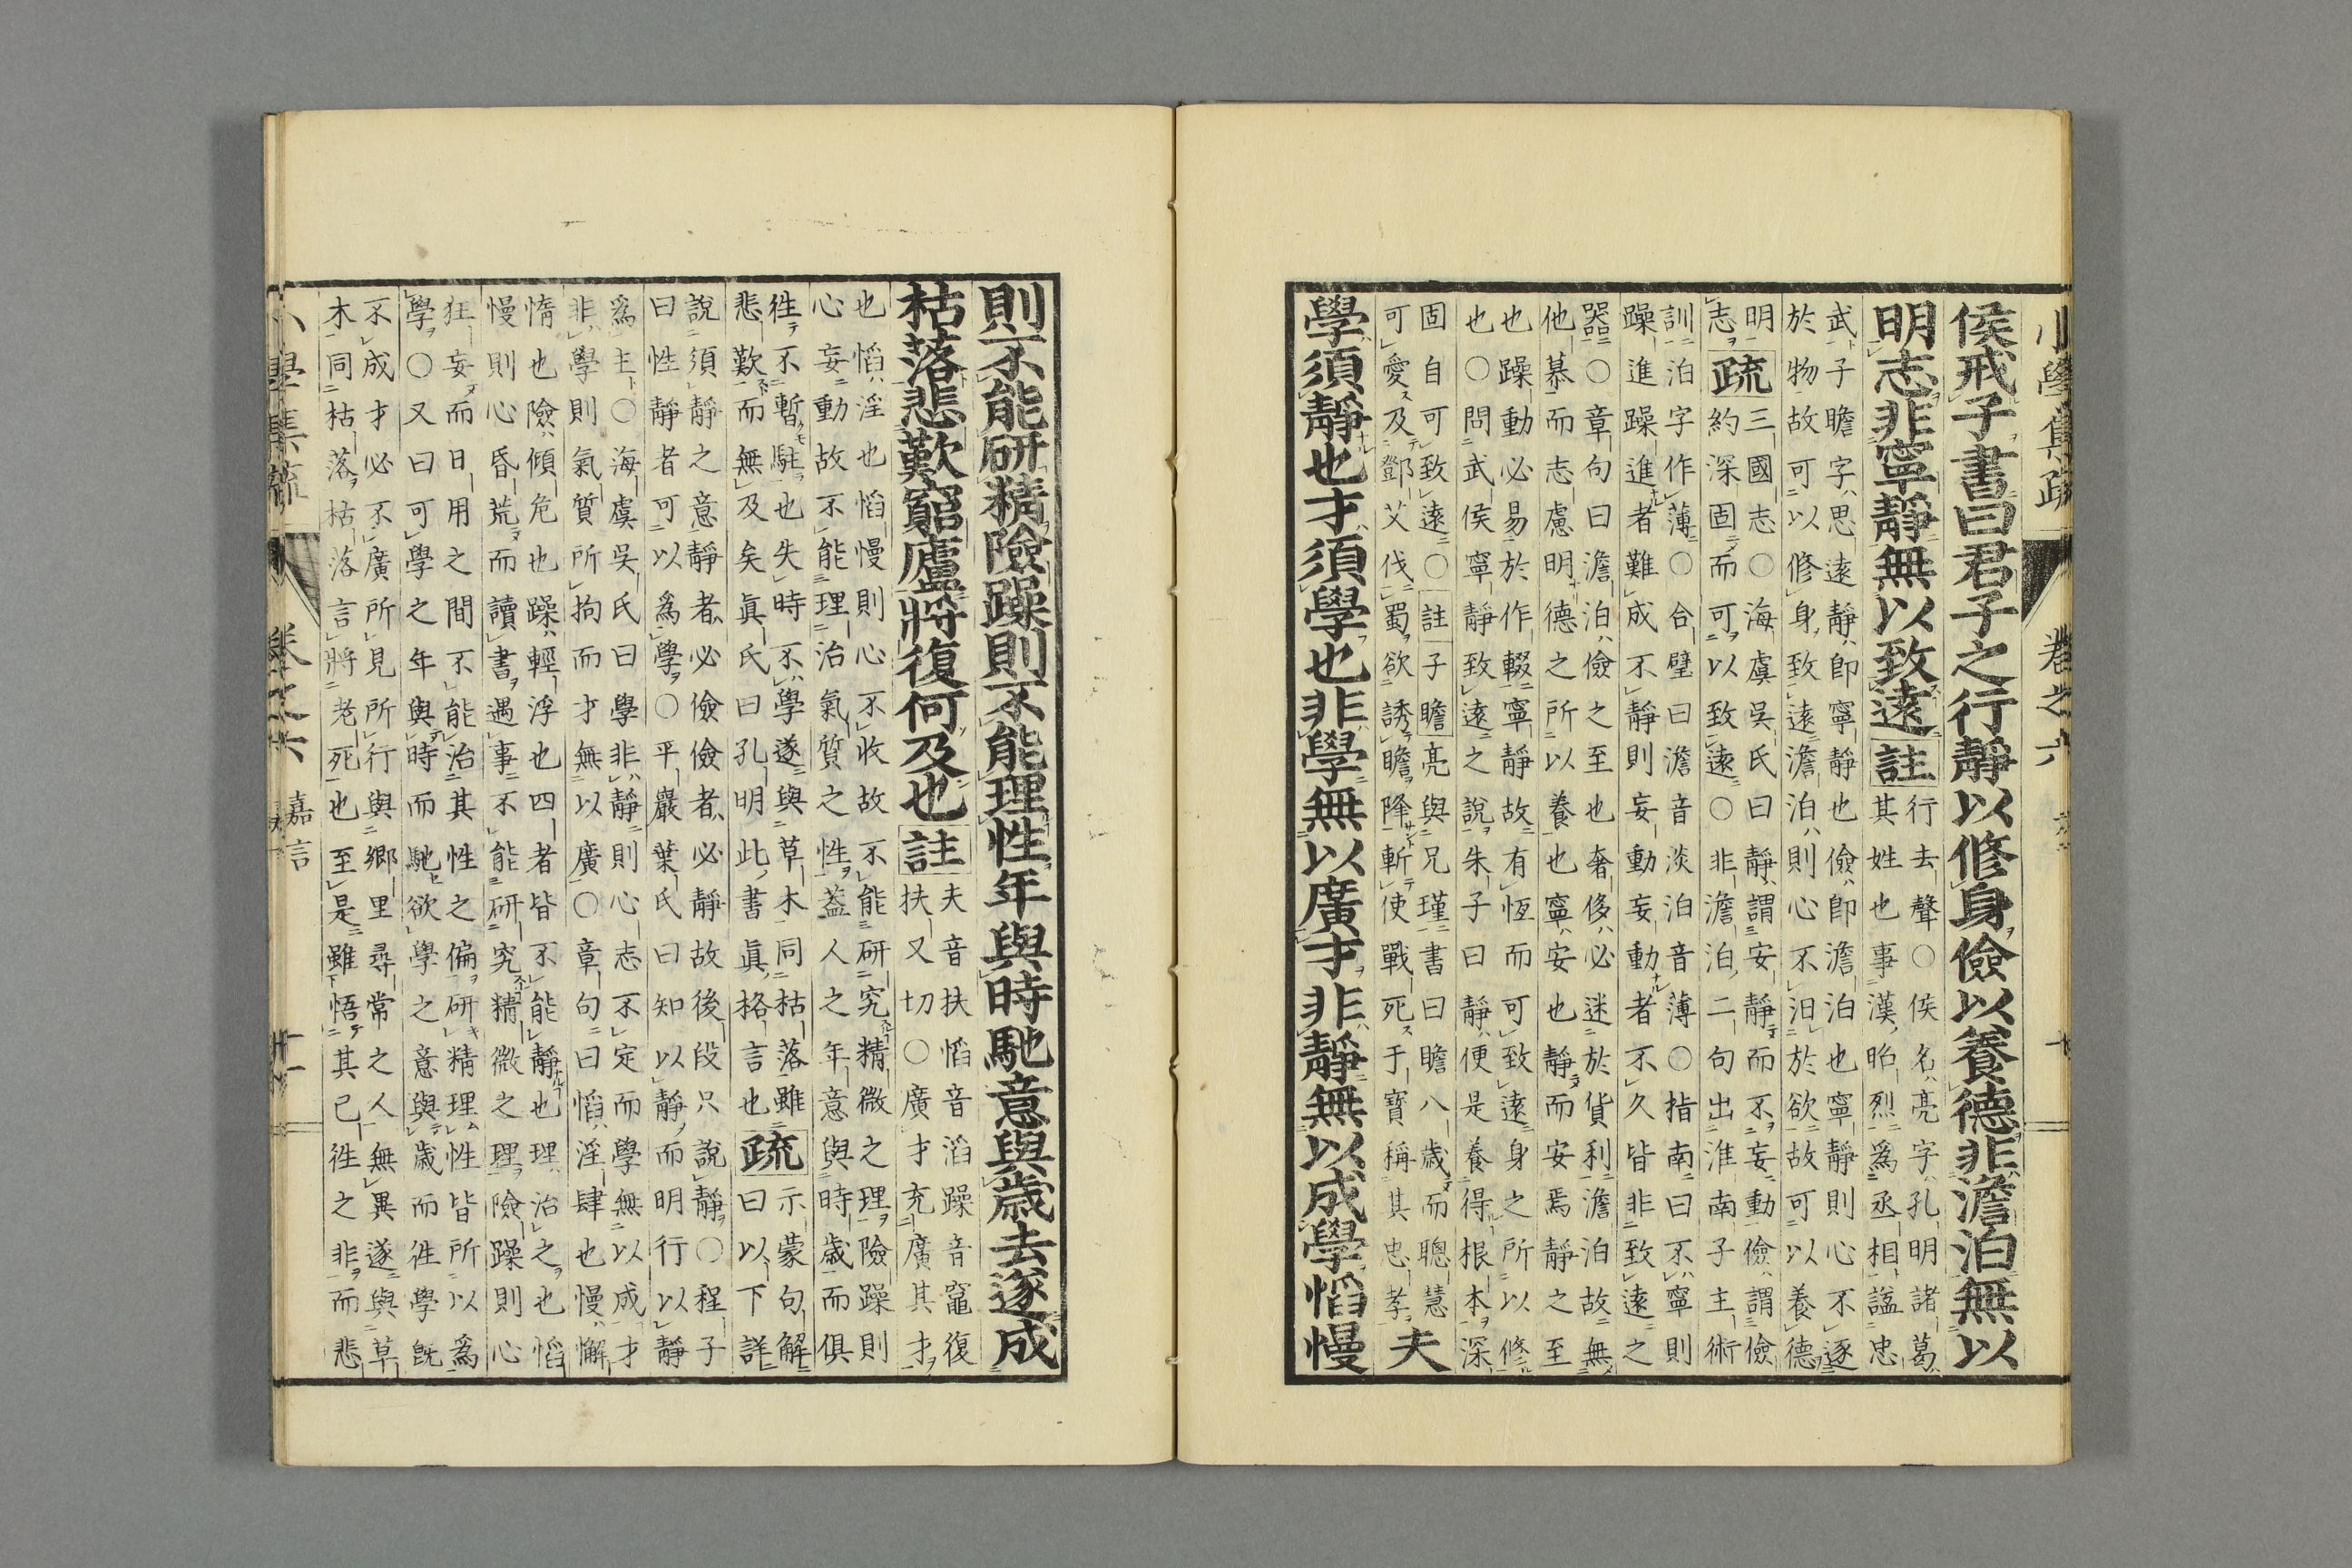 小學集疏
卷之六
侯戒子書曰君子之行靜以修身儉以養德非澹泊無以
明志非寧靜無以致遠 註
行去聲○侯名亮字孔明諸葛
其姓也事漢昭烈爲丞相諡忠
武子瞻字思遠靜卽寧靜也儉卽澹泊也寧靜則心不逐
於物故可以修身致遠澹泊則心不汩於欲故可以養德
明志 疏
三國志○海虞吳氏曰靜謂安靜而不妄動儉謂儉
約深固而可以致遠○非澹泊二句出淮南子主術
訓泊字作薄○合璧曰澹音淡泊音薄○指南曰不寧則
躁進躁進者難成不靜則妄動妄動者不久皆非致遠之
器○章句曰澹泊儉之至也奢侈必迷於貨利澹泊故無
他慕而志慮明德之所以養也寧安也靜而安焉靜之至
也躁動必易於作輟寧靜故有恆而可致遠身之所以修
也○問武侯寧靜致遠之說朱子曰靜便是養得根本深
固自可致遠○註子瞻亮與兄瑾書曰瞻八歲而聰慧
可愛及鄧艾伐蜀欲誘瞻降斬使戰死于寶稱其忠孝
夫
學須靜也才須學也非學無以廣才非靜無以成學慆慢
則不能研精險躁則不能理性年與時馳意與歲去遂成
枯落悲歎窮廬將復何及也 註
夫音扶慆音滔躁音竈復
扶又切○廣才充廣其才
也慆淫也慆慢則心不收故不能研究精微之理險躁則
心妄動故不能理治氣質之性蓋人之年意與時歲而俱
徃不暫駐也失時不學遂與草木同枯落雖
悲歎而無及矣眞氏曰孔明此書眞格言也
疏
示蒙句解
曰以下詳
說須靜之意靜者必儉儉者必靜故後段只說靜○程子
曰性靜者可以爲學○平巖葉氏曰知以靜而明行以靜
爲主○海虞吳氏曰學非靜則心志不定而學無以成才
非學則氣質所拘而才無以廣○章句曰慆淫肆也慢懈
惰也險傾危也躁輕浮也四者皆不能靜也理治之也慆
慢則心昏荒而讀書遇事不能研究精微之理險躁則心
狂妄而日用之間不能治其性之偏研精理性皆所以爲
學○又曰可學之年與時而馳欲學之意與歲而徃學旣
不成才必不廣所見所行與鄉里尋常之人無異遂與草
木同枯落枯落言將老死也至是雖悟其已徃之非而悲
小學集疏
卷之六
嘉言